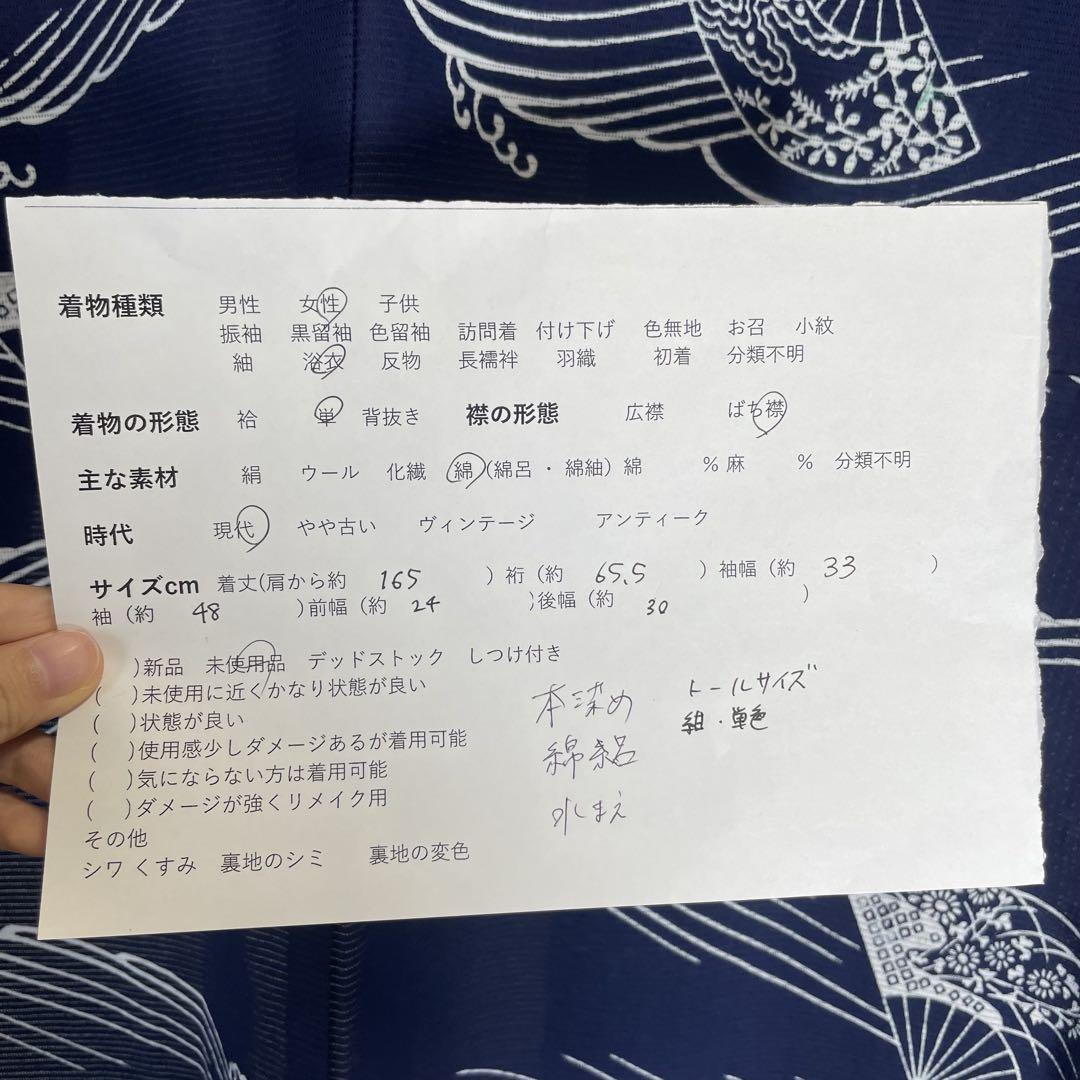 着物種類 男性 女性 子供
振袖 黒留袖 色留袖 訪問着 付け下げ 色無地 お召 小紋
紬 浴衣 反物 長襦袢 羽織 初着 分類不明
着物の形態 袷 単 背抜き 襟の形態 広襟 ばち襟
主な素材 絹 ウール 化繊 綿 (綿呂 ・ 綿紬) 綿 % 麻 % 分類不明
時代 現代 やや古い ヴィンテージ アンティーク
サイズcm 着丈(肩から約 165 ) 裄 (約 65.5 ) 袖幅 (約 33 )
袖 (約 48 )前幅 (約 24 )後幅 (約 30 )
)新品 未使用品 デッドストック しつけ付き
( )未使用に近くかなり状態が良い
( )状態が良い
( )使用感少しダメージあるが着用可能
( )気にならない方は着用可能
( )ダメージが強くリメイク用
その他
シワ くすみ 裏地のシミ 裏地の変色
本染め
綿絽
水
トールサイズ
紺・単色